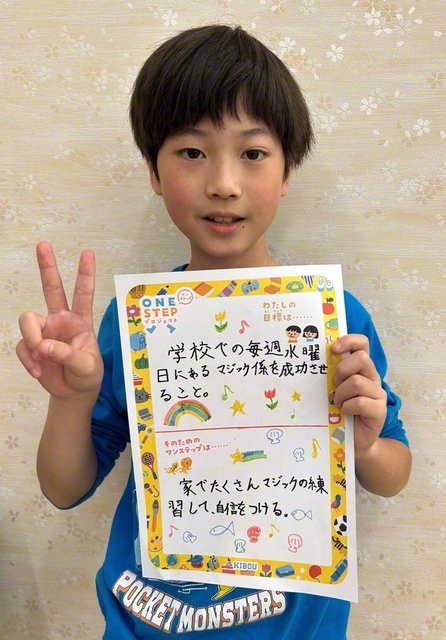 ONE
STEP
プロジェクト
わたしの
目標は……
学校での毎週水曜
日にある マジック係を成功させ
ること。
そのための
ワンステップは……
家でたくさんマジックの練
習して、自信をつける。
KIBOU
POCKET MONSTERS